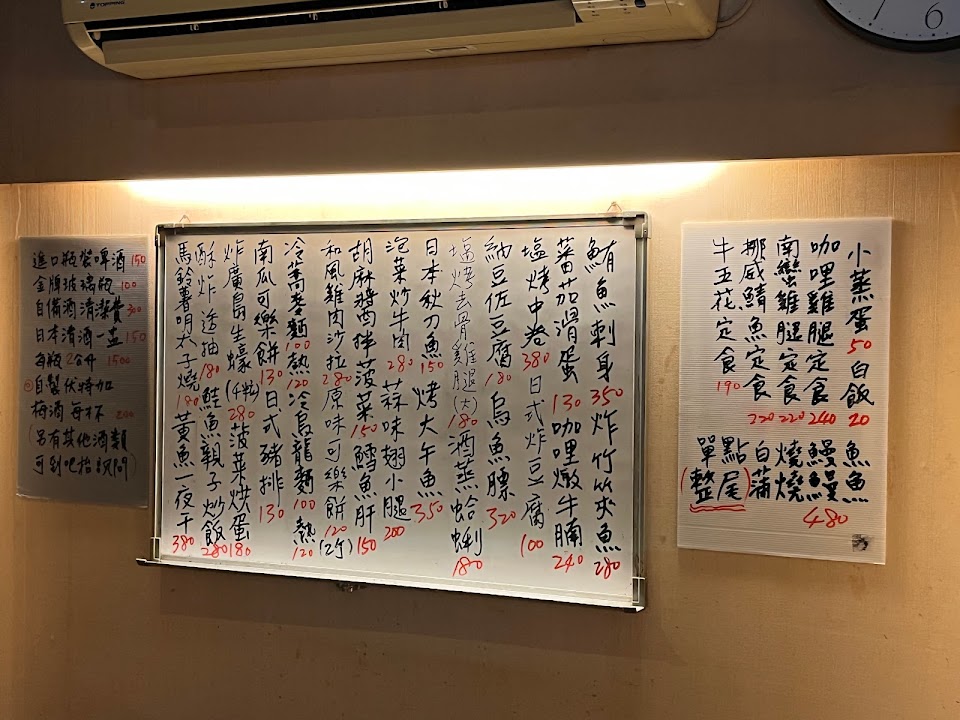 TOPPING
6
進口瓶裝啤酒 150
金牌玻璃瓶 100
自備酒清潔費 300
日本清酒一壺 150
每瓶2公升 1500
自製伏特加
梅酒每杯 200
(另有其他酒類
可到吧抬訊問)
鮪魚刺身 350 炸竹筴魚 280
蕃茄滑蛋 130 咖哩燉牛腩 240
塩烤中卷 380 日式炸豆腐 100
納豆佐豆腐 180 烏魚膘 320
塩烤去骨雞腿(大) 180 酒蒸蛤蜊 180
日本秋刀魚 150 烤大午魚 350
泡菜炒牛肉 280 蒜味翅小腿 200
胡麻醬西拌菠菜 150 鱈魚肝 150
和風雞肉沙拉 280 原味可樂餅 120 (2個)
冷蕎麥麵 100 熱 120 冷烏龍麵 100 熱 120
南瓜可樂餅 130 日式豬排 130
炸廣島生蠔(4粒) 280 菠菜烘蛋 180
酥炸透抽 180 鮭魚親子炒飯 280
馬鈴薯明太子燒 180 黃魚一夜干 380
小蒸蛋 50 白飯 20
咖哩雞腿定食 240
南蠻雞腿定食 220
挪威鯖魚定食 220
牛五花定食 190
鰻魚
鰻魚 480
燒燒
白蒲
單點
(整尾)